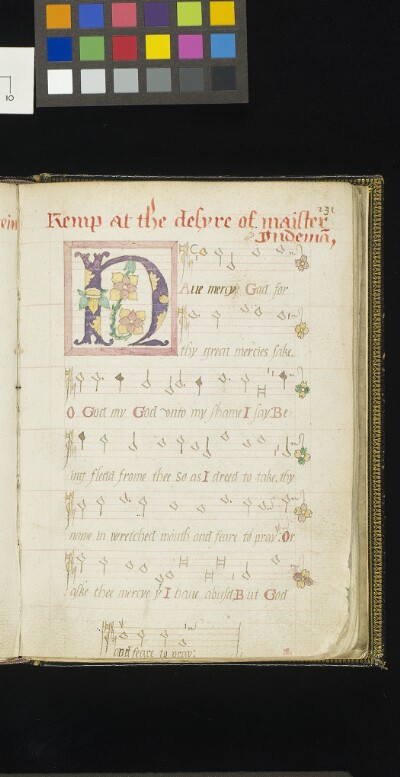 ein
Kemp at the desyre of maister
Pridemā,
231
H
Aue mercy God for
thy great mercies sake.
O God my God vnto my shame I say. Be
ing fleeta frome thee so as I dred to take. thy
name in wretched mouth and feare to pray. Or
aske thee mercye yt I haue abusd. But God
and feare to pray:
10